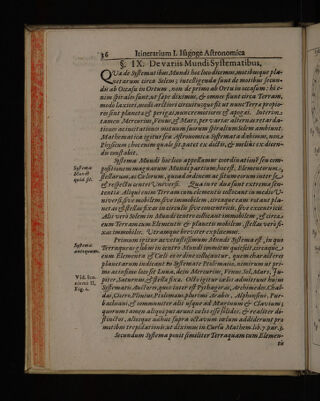 36 Itinerarium I. Isagoge Astronomica
§. IX. De variis Mundi Systematibus,
QVæ de Systematibus Mundi hoc loco dicemus, motibusque pla-
netarum circa Solem; intelligenda sunt de motibus secun-
dis ab Occasu in Ortum, non de primo ab Ortu in occasum: hi e-
nim spirales sunt, ut sæpe diximus, & omnes fiunt circa Terram,
modò laxiores, modò arctiori circuitu, quo fit ut nunc Terræ propio-
res sint planetæ & perigæi, nunc remotiores & apogæi.
tamen Mercurius, Venus, & Mars, per varias
tiones ac incitationes motuum suorum spiralium Solem ambiunt.
Mathematica igitur seu Astronomica Systemata dabimus, non
Physicum; hoc enim quale sit patet ex dictis, & melius ex dicen-
dis constabit.
Systema Mundi hoc loco appellamus coordinationem seu com-
positionem magnarum Mundi partium, hoc est, Elementorum,
stellarum, ac Cœlorum, quoad ordinem ac situm eorum inter se,
& respectu centri Universi. Qua in re duæ sunt extremæ sen-
tentiæ. Alii enim Terram cum elementis collocant in medio U-
niversi, sive mobilem, sive immobilem, circa eam rotant plane-
tas & stellas fixas in circulis sive concentricis, sive excentricis.
Alii verò Solem in Mundi centro collocant immobilem, & circa
eum Terram cum Elementis & planetis mobilem, stellas verò fi-
xas immobiles. Utramque breviter explicemus.
Systema
Mundi
quid sit.
Primum igitur ac vetustissimum Mundi Systema est, in quo
Terra quiescit in centro Mundi immobilis, circaque
eam Elementa & Cœli eo ordine collocantur, quem characteres
planetarum indicant
mo ac infimo loco sit Luna, dein Mercurius, Venus, Sol, Mars, Ju-
piter, Saturnus, & stellæ fixæ. Octo igitur cælos admiserunt hujus
Systematis Auctores, quos inter est Pythagoras, Archimedes, Chal-
dæi, Cicero, Plinius, Ptolemæus, plurimi Arabes, Alphonsini, Pur-
bachius, & communiter alii usque ad Maurinum & Clavium;
quorum tamen aliqui putarunt cælos esse solidos, & realiter di-
stinctos, aliosque adhuc supra octavum cœlum addiderunt pro
motibus trepidationis, ut diximus in Cursu Mathem. lib. 7. par. 3.
Systema
antiquum.
Vid. Ico-
nismus II.
Fig. 1.
Secundum Systema ponit similiter Terraquam cum Elemen-
tis